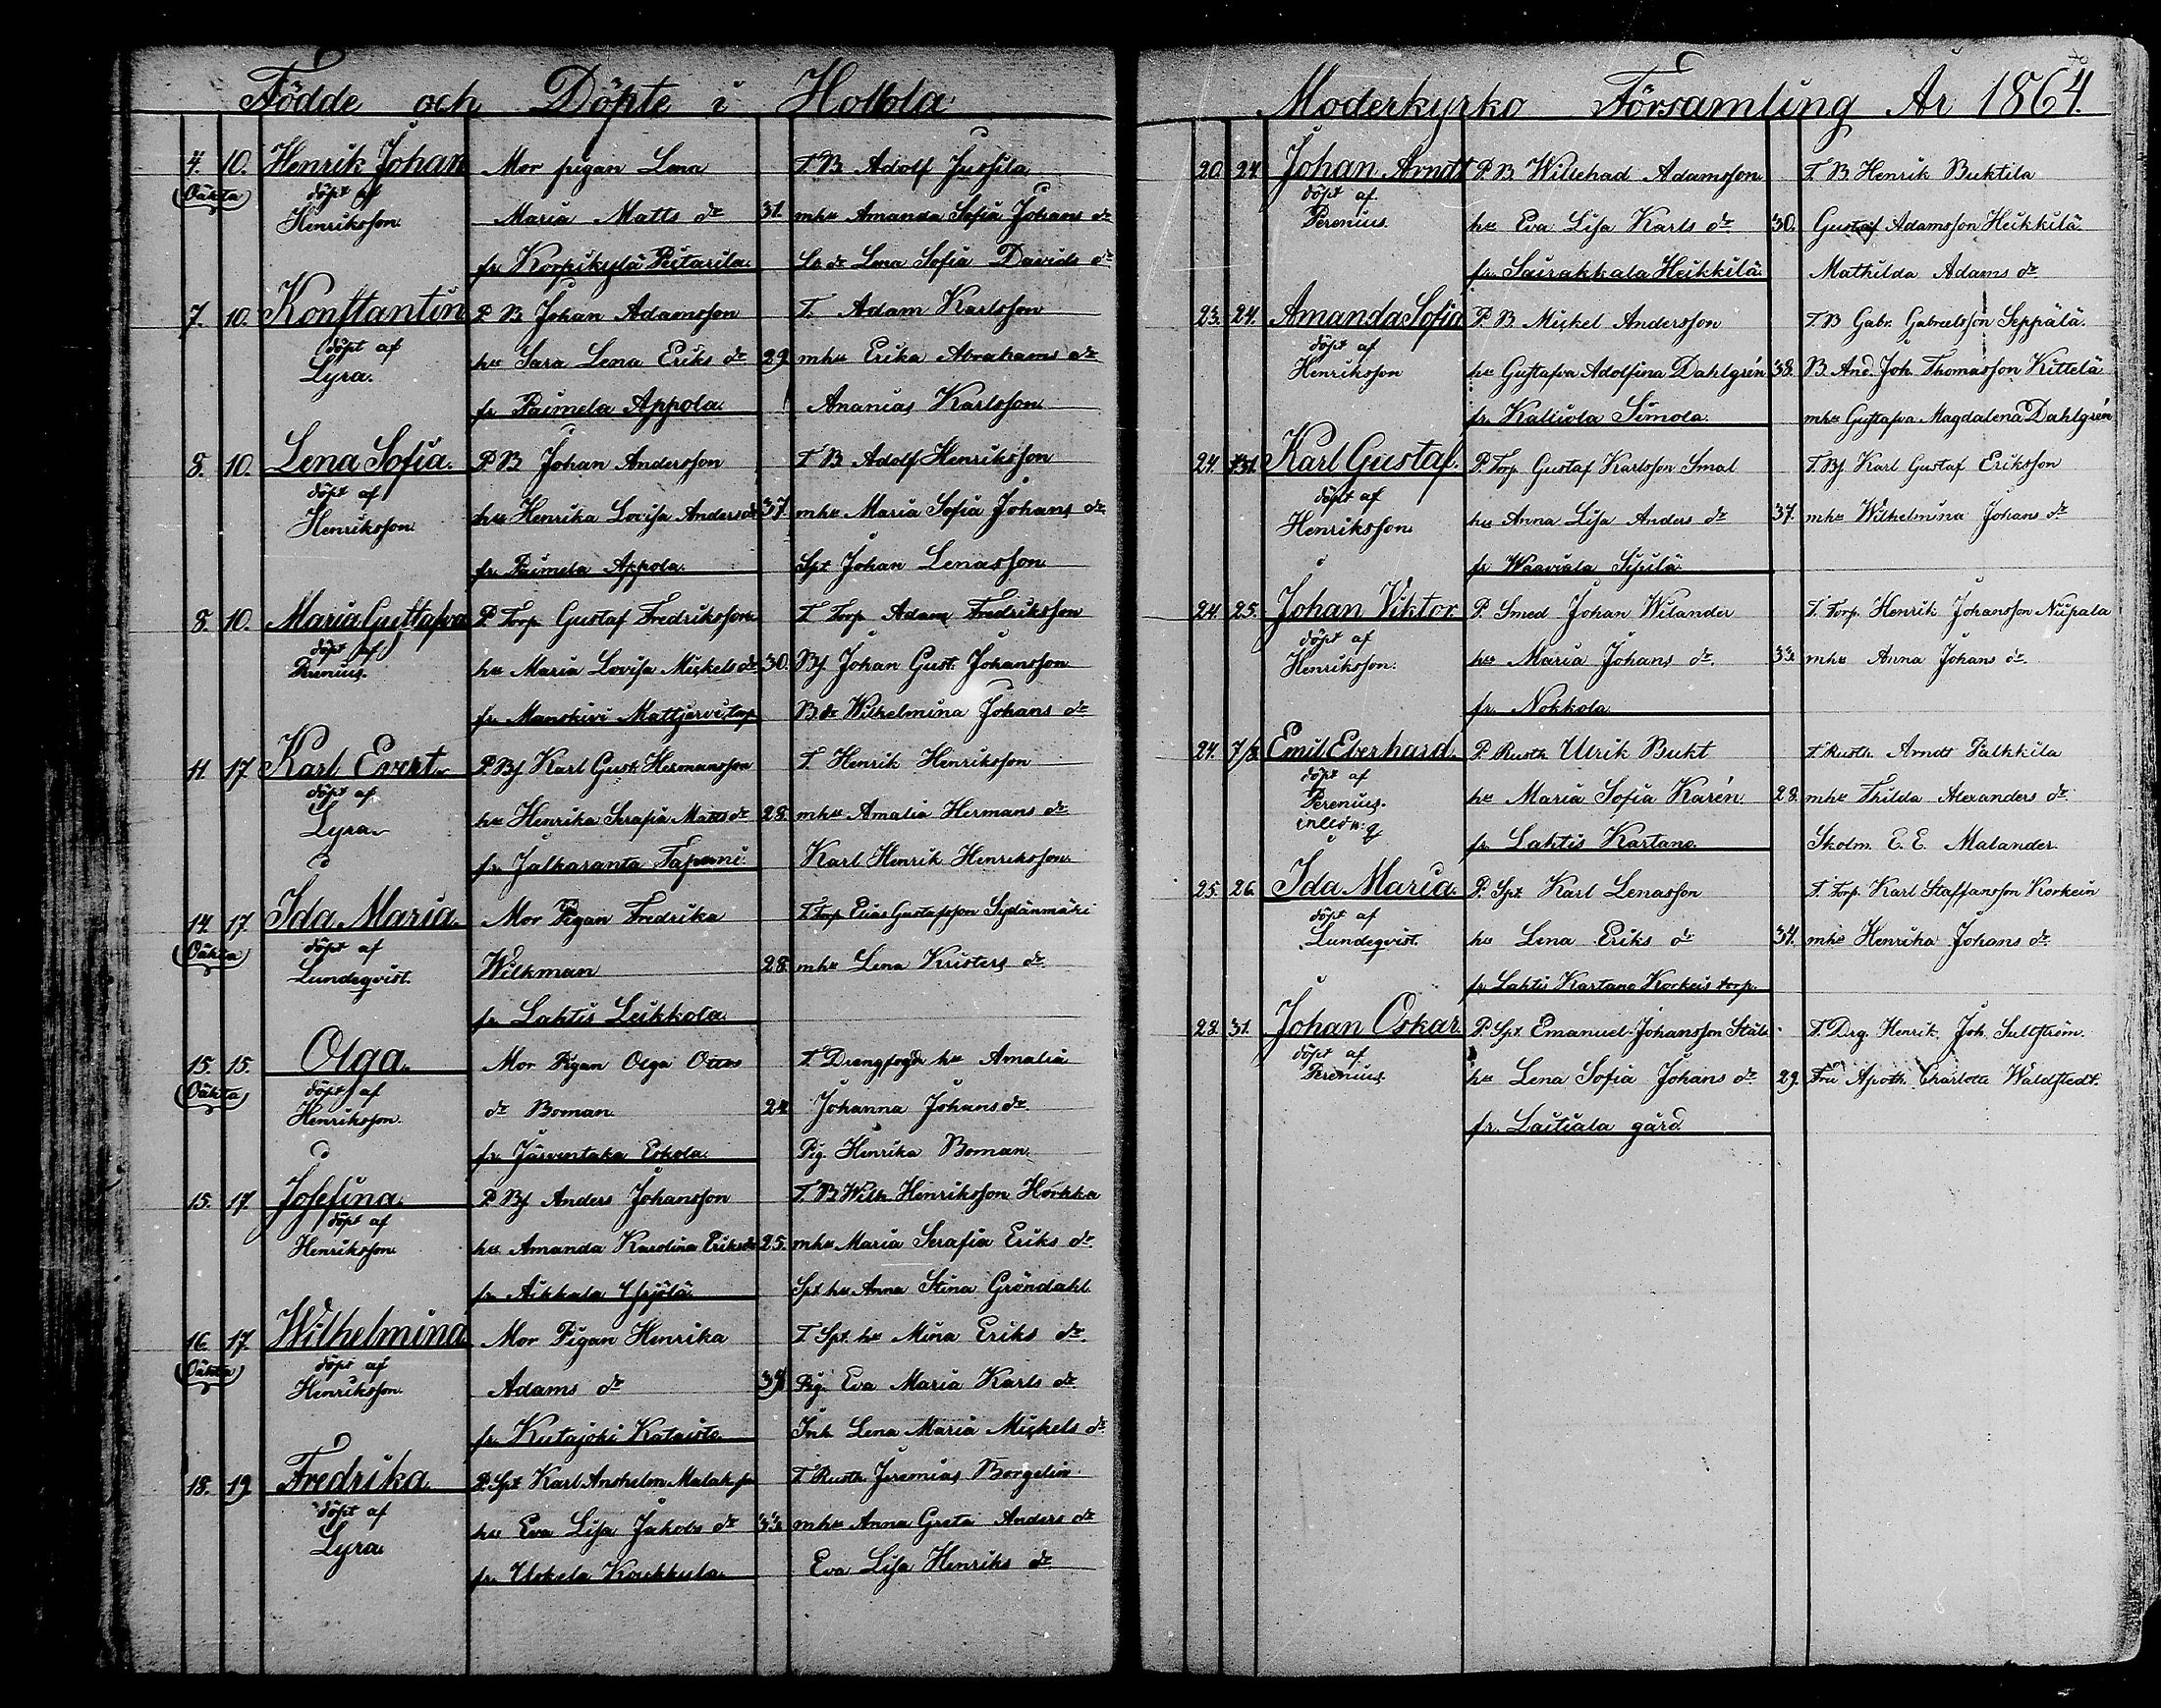 Födde och Döpte i Hollola
4. 10. Henrik Johan Mor pigan Lena T. B Adolf Jussila
(Oäkta) döpt af Maria Matts dr 31. mhu Amanda Sofia Johans dr
Henriksson. fr. Korpikylä Pietarila. Ls dr Lena Sofia Davids dr
7. 10. Konstantin P. B Johan Adamsson T. Adam Karlsson
döpt af hu Sara Lena Eriks dr 29. mhu Erika Abrahams dr
Lyra. fr Paimela Appola. Ananias Karlsson
8. 10. Lena Sofia. P B Johan Andersson T B Adolf Henriksson
döpt af hu Henrika Lovisa Anders dr 37. mhu Maria Sofia Johans dr
Henriksson fr. Paimela Appola. Spt Johan Lenasson
8. 10. Maria Gustafva P Torp Gustaf Fredriksson T Torp Adam Fredriksson
döpt af hu Maria Lovisa Mickels dr 30. Bf Johan Gust. Johansson
Perenius. fr. Manskivi Mattjervi torp B dr Wilhelmina Johans dr
11. 17. Karl Evert P. Bf Karl Gust. Hermansson T. Henrik Henriksson
döpt af hu Henrika Serafia Matts dr 28. mhu Amalia Hermans dr
Lyra. fr. Jalkaranta Tapani. Karl Henrik Henriksson.
14. 17. Ida Maria. Mor Pigan Fredrika T. Torp Elias Gustafsson Sydänmäki
(Oäkta) döpt af Wilkman 28. mhu Lena Kristers dr
Lundeqvist. fr. Lahtis Leikkola.
15. 15. Olga. Mor Pigan Olga Ottos T. Drengfogde hu Amalia
(Oäkta) döpt af dr Boman. 24 Johanna Johans dr.
Henriksson. fr. Järventaka Eskola. Pig. Henrika Boman.
15. 17. Josefina. P Bf Anders Johansson T. B Wilh. Henriksson Horkka
döpt af hu Amanda Karolina Eriks dr 25. mhu Maria Serafia Eriks dr.
Henriksson. fr. Aikkala Yspölä Spt hu Anna Stina Gröndahl
16. 17. Wilhelmina Mor Pigan Henrika T. Spt. hu Mina Eriks dr.
(Oäkta) döpt af Adams dr Pig. Eva Maria Karls dr.
Henriksson. fr. Kutajoki Kataisto. Inh. Lena Maria Mickels dr
18. 19 Fredrika P. Spt Karl Anshelm T Rusth. Jeremias Borgelin
döpt af hu Eva Lisa Jakobs dr 33. mhu Anna Greta Anders dr
Lyra. fr. Uskela Koukkula. Eva Lisa Henriks dr.
Moderkyrko Församling År 1864.
20 24. Johan Arndt P. B Willehad Adamsson T. B. Henrik Buktila
döpt af hu Eva Lisa Karls dr 30. Gustaf Adamsson Heikkilä.
Perenius. fr. Sairakkala Heikkilä. Mathilda Adams dr
23. 24. Amanda Sofia P. B Mickel Andersson T. B Gabr. Gabrielsson Seppälä.
döpt af hu Gustafva Adolfina Dahlgrén 38. B. And. Joh. Thomasson Kittelä
Henriksson fr. Kalliola Simola. mhu Gustafva Magdalena Dahlgrén
24. 31. Karl Gustaf. P. Torp. Gustaf Karlsson Smal T. Bf. Karl Gustaf Eriksson
döpt af hu Anna Lisa Anders dr 37. mhu Wilhelmina Johans dr
Henriksson. fr Waaviala Sipilä
24. 25. Johan Viktor. P. Smed Johan Wilander T. Torp. Henrik Johansson Niipala
döpt af hu Maria Johans dr. 33. mhu Anna Johans dr.
Henriksson. fr. Nokkola
24. 7/8. Emil Eberhard. P. Rusth Ulrik Bukt T. Rusth. Arndt Palkkila
döpt af hu Maria Sofia Karén. 28. mhu Thilda Alexanders dr.
Perenius.
fr. Lahtis Kartano. Skolm. E. E. Malander.
25. 26. Ida Maria. P. Spt Karl Lenasson T. Torp. Karl Staffansson Korkein
döpt af hu Lena Eriks dr 34. mhu Henrika Johans dr.
Lundeqvist. fr Lahtis Kartano Korkeis torp.
28. 31. Johan Oskar. P. Spt. Emanuel Johansson Stål T. Drg. Henrik. Joh. Sullström.
döpt af hu Lena Sofia Johans dr 29. Fru Apoth. Charlotta Waldstedt.
Perenius. fr. Laitiala gård